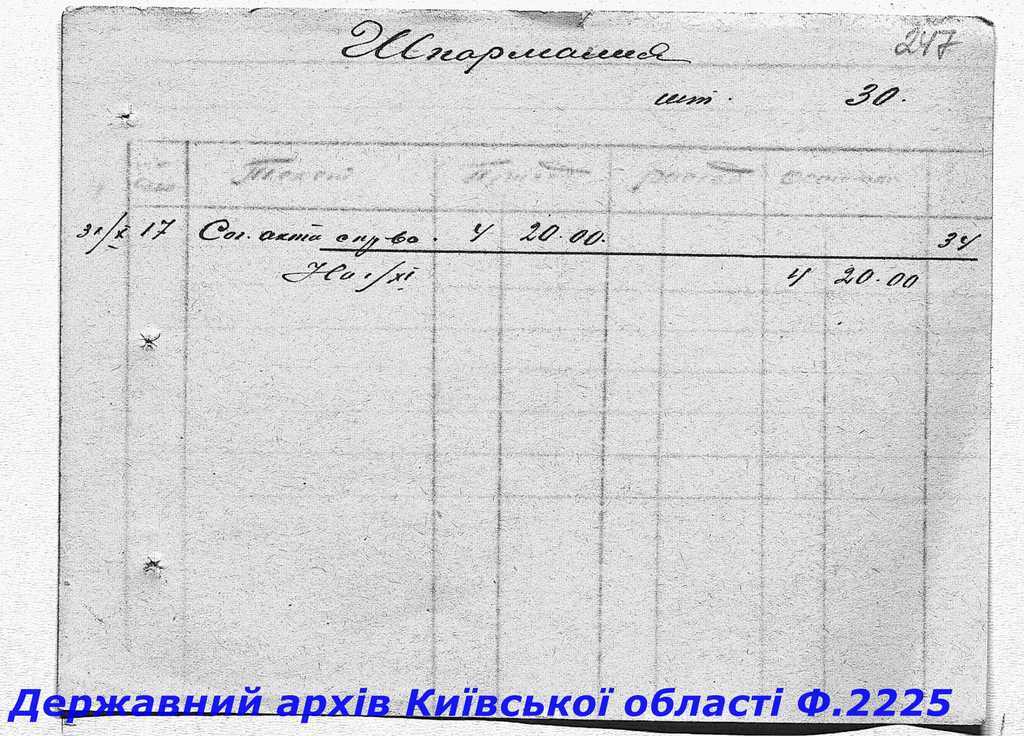 247
шт. 30.
Текст Приход расход остаток
31/X 17 Сог. акта 4 20.00. 34
На 1/XI 4 20.00
Державний архів Київської області Ф.2225